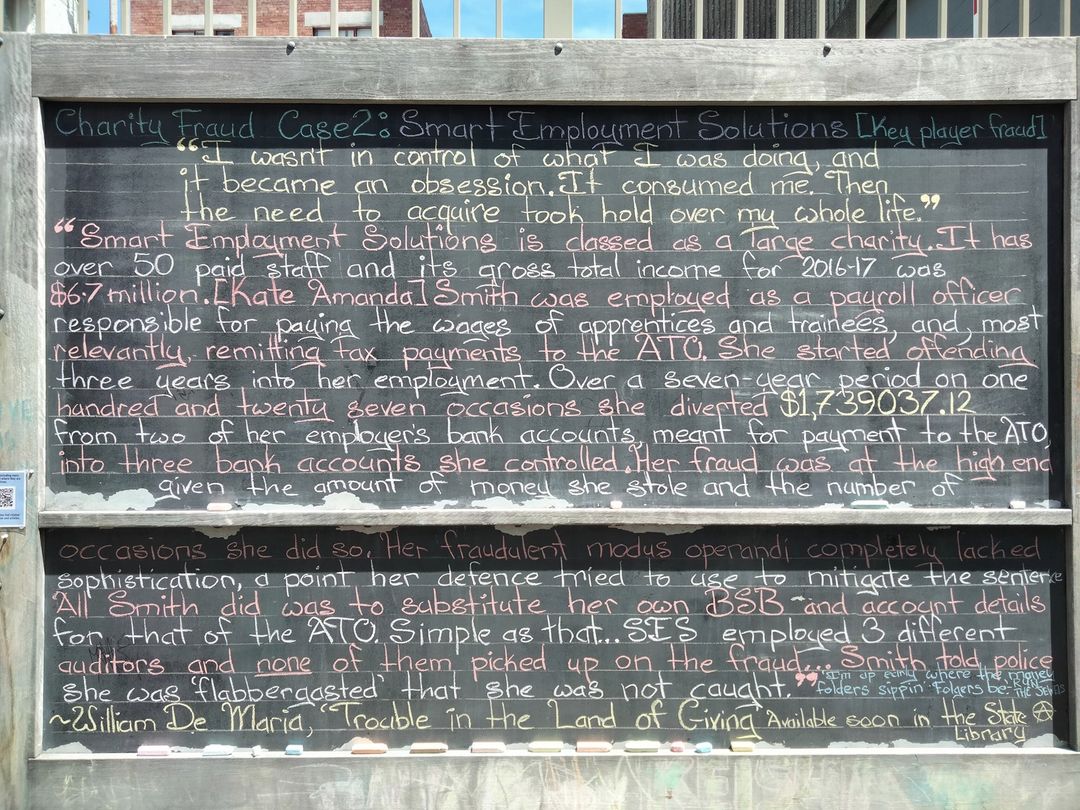 Charity Fraud Case2: Smart Employment Solutions [Key player fraud]
“I wasnt in control of what I was doing, and
it became an obsession. It consumed me. Then
the need to acquire took hold over my whole life.”
“Smart Employment Solutions is classed as a large charity. It has
over 50 paid staff and its gross total income for 2016-17 was
$6.7 million. [Kate Amanda] Smith was employed as a payroll officer
responsible for paying the wages of apprentices and trainees, and, most
relevantly, remitting tax payments to the ATO. She started offending
three years into her employment. Over a seven-year period on one
hundred and twenty seven occasions she diverted $1,739037.12
from two of her employer's bank accounts, meant for payment to the ATO,
into three bank accounts she controlled. Her fraud was at the high end
given the amount of money she stole and the number of
occasions she did so. Her fraudulent modus operandi completely lacked
sophistication, a point her defence tried to use to mitigate the sentence
All Smith did was to substitute her own BSB and account details
for that of the ATO. Simple as that... SES employed 3 different
auditors and none of them picked up on the fraud... Smith told police
she was 'flabbergasted' that she was not caught.”
"I'm up early where the money
folders sippin' Folgers be-
~William De Maria, 'Trouble in the Land of Giving Available soon in the State
Library